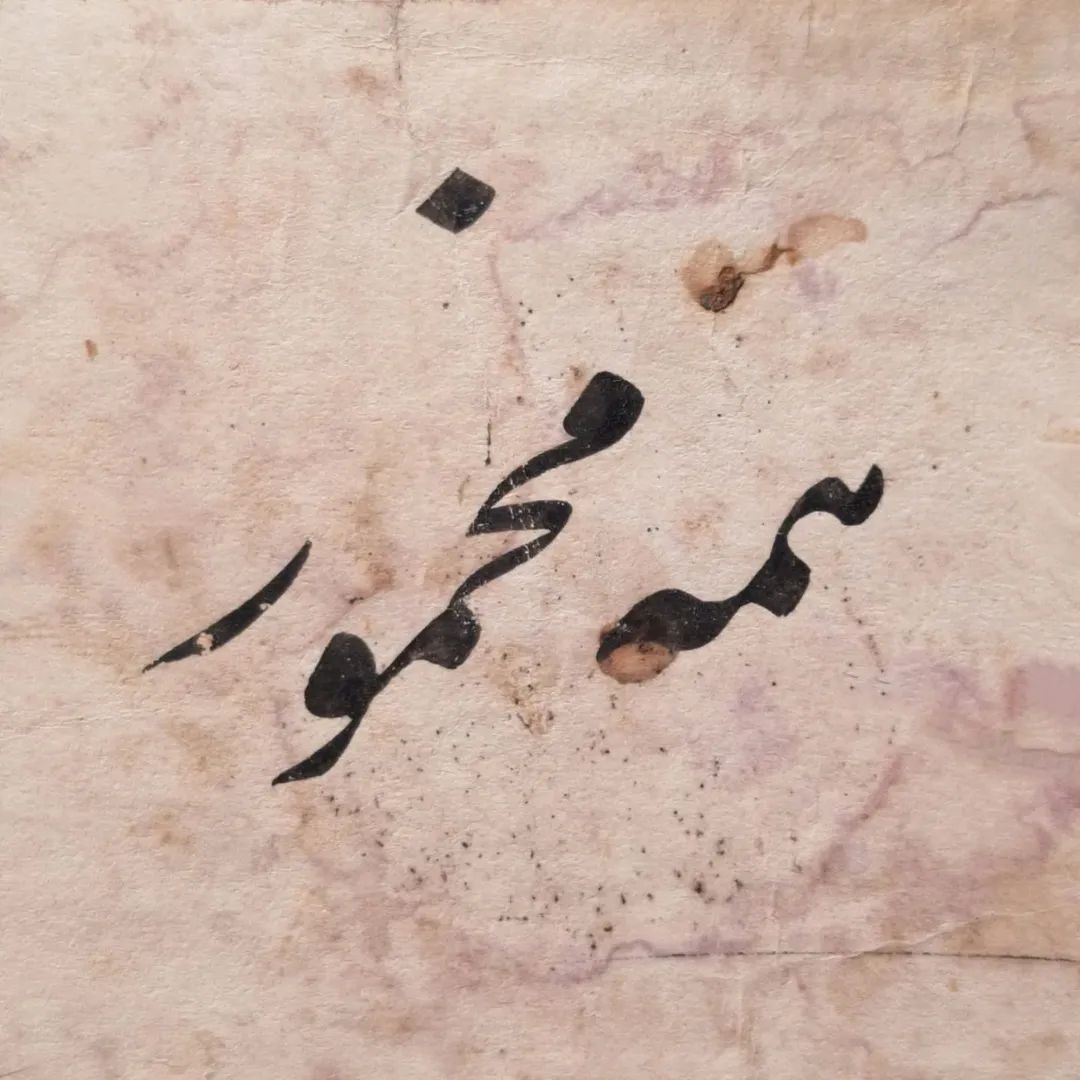 همه مخمور